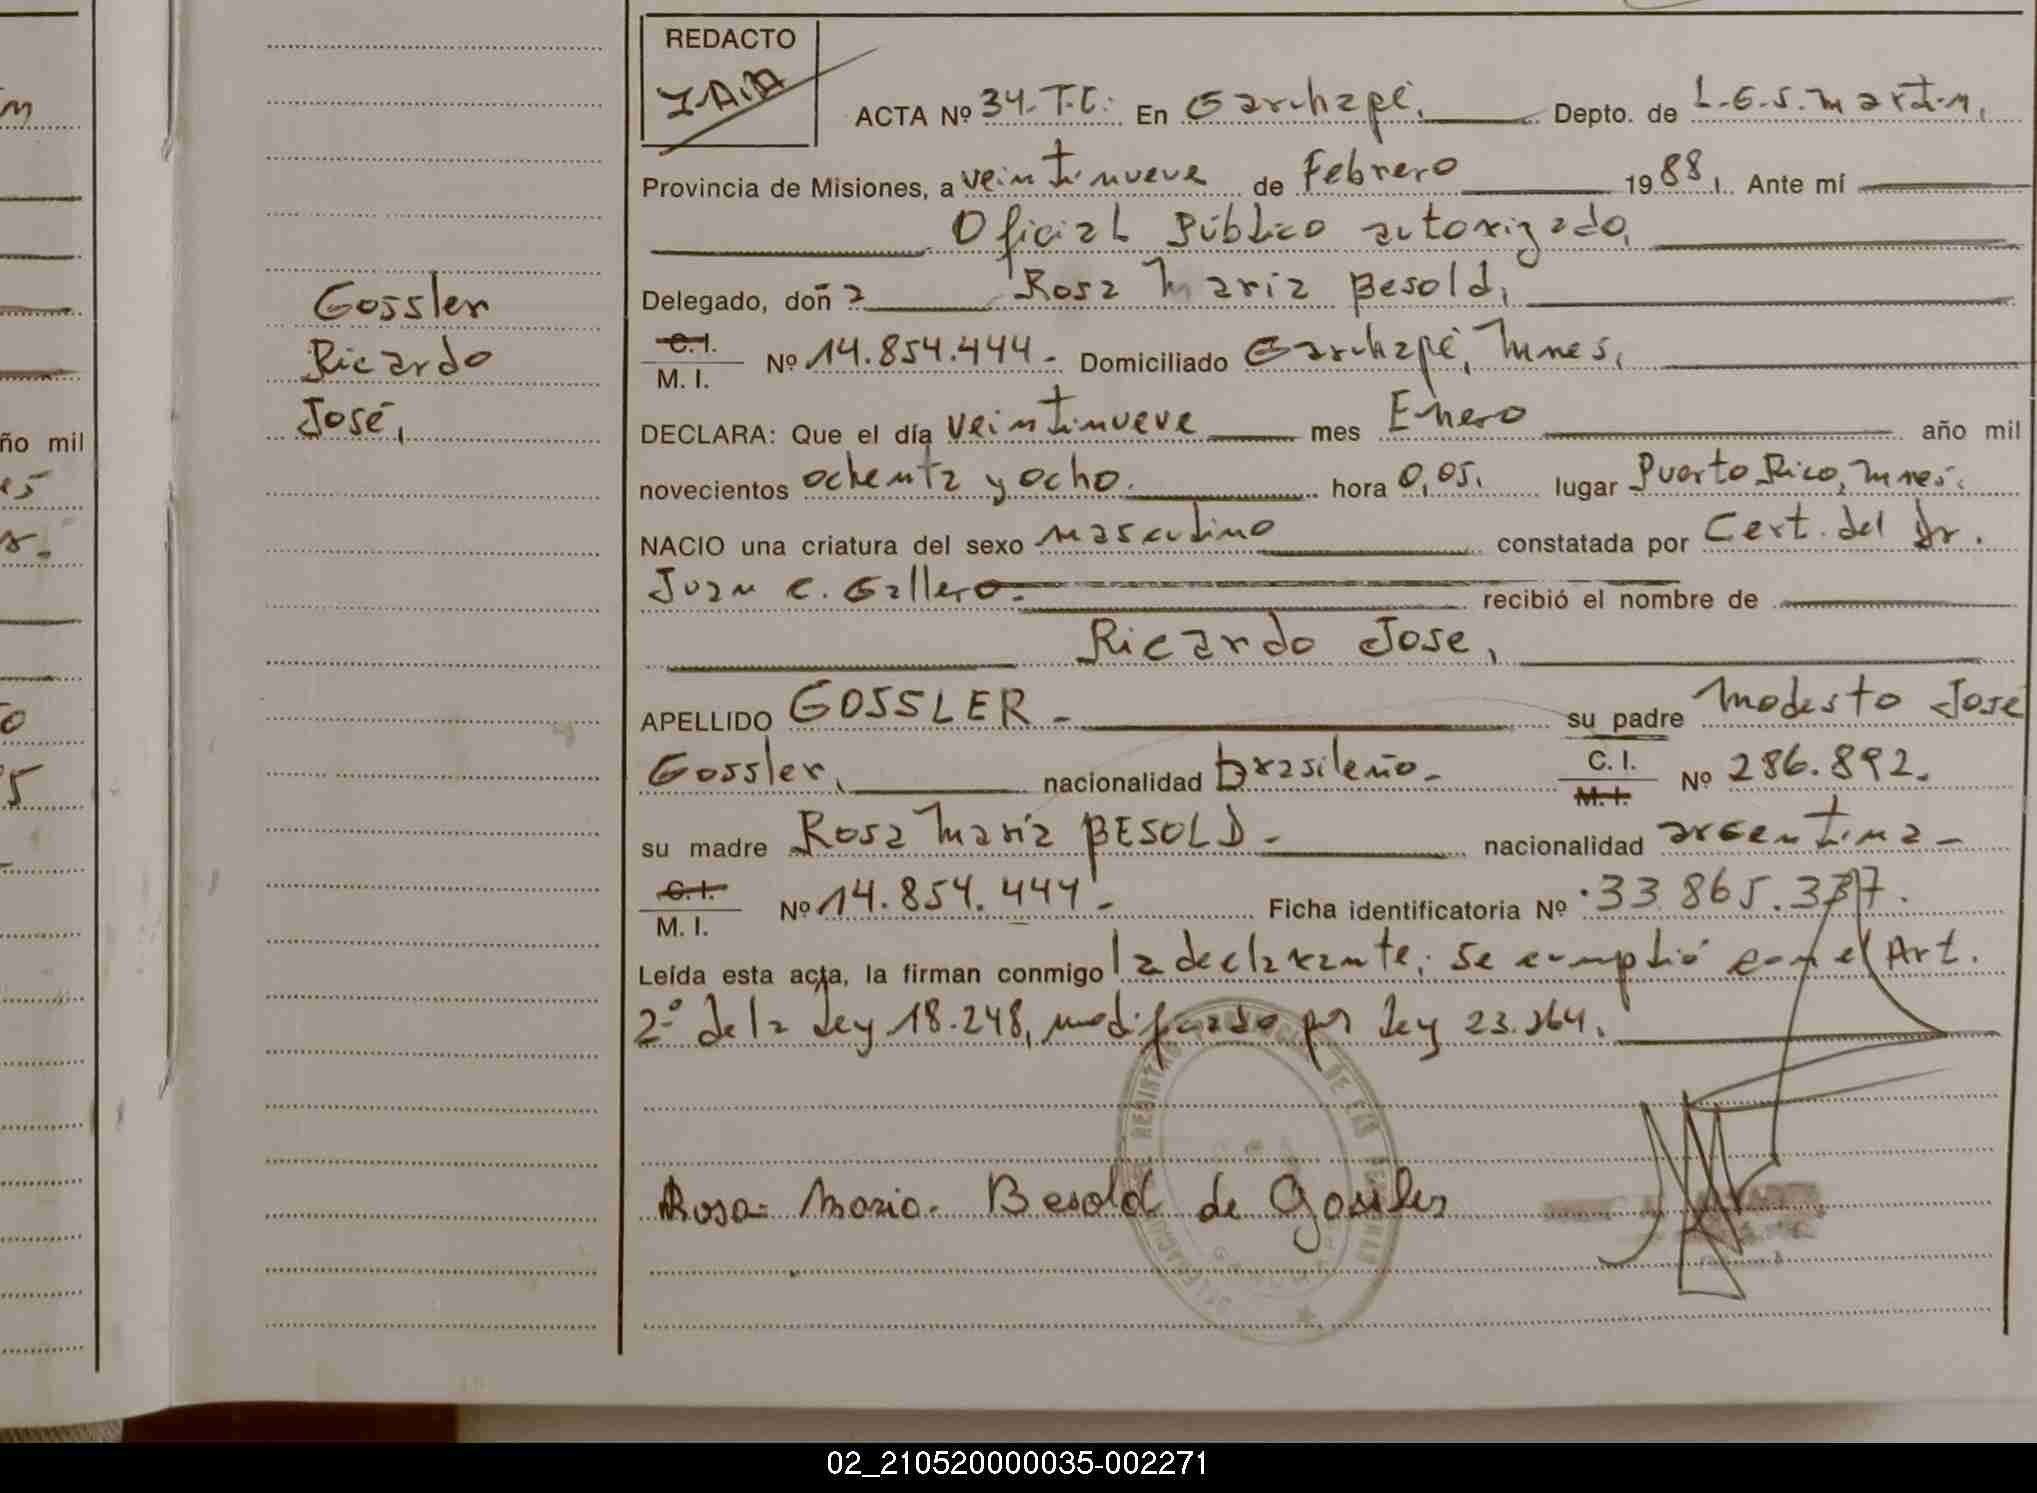 REDACTO
ACTA Nº 34-T.C. En Garuhapé, Depto. de L.G.S. Martin,
Provincia de Misiones, a veintinueve de Febrero 1988. Ante mí
Oficial Público autorizado,
Delegado, doña Rosa María Besold,
C.I. M. I. Nº 14.854.444- Domiciliado Garuhapé, Mnes,
DECLARA: Que el día veintinueve mes Enero año mil
novecientos ochenta y ocho. hora 0,05. lugar Puerto Rico, Mnes.
NACIO una criatura del sexo masculino constatada por Cert. del Dr.
Juan C. Gallero- recibió el nombre de
Ricardo Jose,
APELLIDO GOSSLER- su padre Modesto José
Gossler, nacionalidad brasileño- C. I. M. I. Nº 286.892.
su madre Rosa María BESOLD- nacionalidad argentina-
C. I. M. I. Nº 14.854.444- Ficha identificatoria Nº 33.865.337.
Leída esta acta, la firman conmigo la declarante; Se cumplió con el Art.
2º de la Ley 18.248, modificado por Ley 23.264.
Rosa Maria Besold de Gossler
Gossler
Ricardo
José,
ño mil
02_210520000035-002271